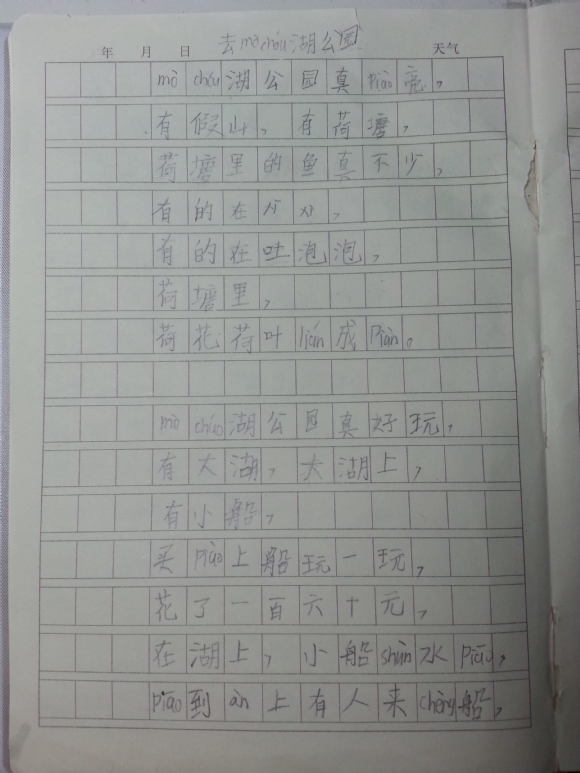 去mò chóu湖公园
年 月 日 天气
mò chóu湖公园真piào亮，
有假山，有荷塘，
荷塘里的鱼真不少，
有的在
有的在吐泡泡，
荷塘里，
荷花荷叶lián成piàn。
mò chóu湖公园真好玩，
有大湖，大湖上，
有小船，
买piào上船玩一玩，
花了一百六十元，
在湖上，小船shùn水piāo，
piāo到àn上有人来chéng船，